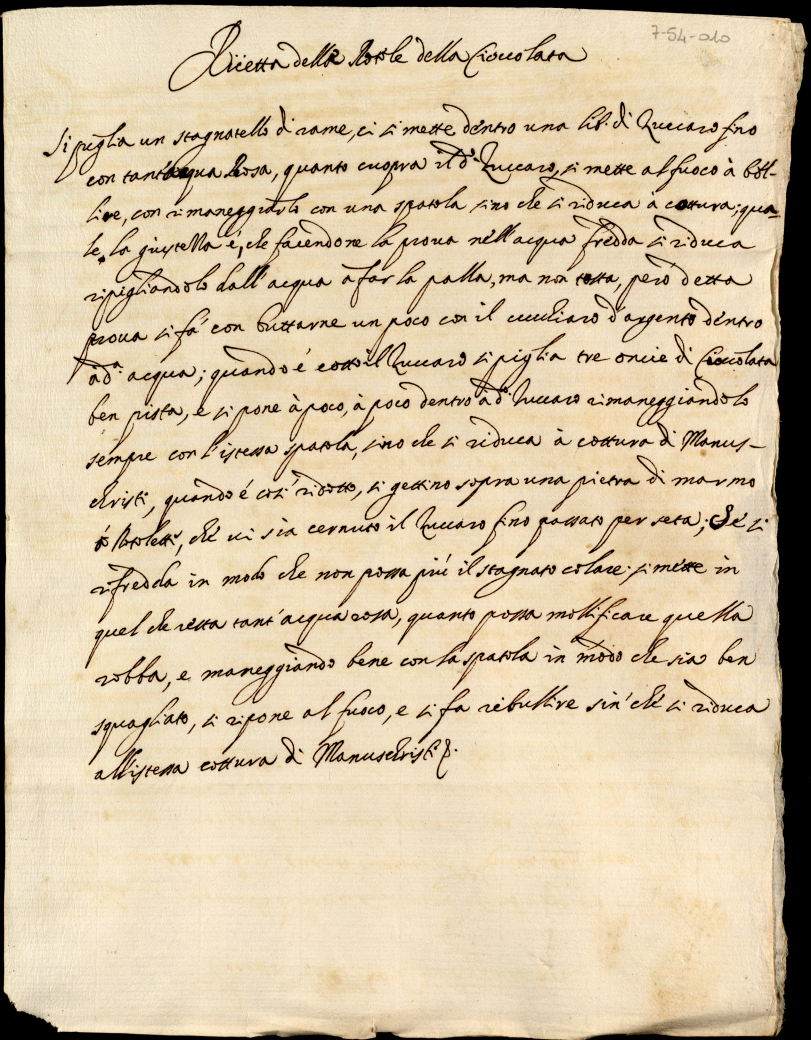 7-54-010
Ricetta delle Rotole della Cioccolata
Si piglia un stagnatello di rame, ci si mette dentro una lib. di Zuccaro fino
con tant'acqua Rosa, quanto cuopra il d.º Zuccaro, si mette al fuoco à bol-
lire, con rimaneggiarlo con una spatola sino che si riduca à cottura; qua-
le, la giustezza é, che facendone la prova nell'acqua fredda si riduca
ripigliandolo dall'acqua a far la palla, ma non tosta, però detta
prova si fa' con buttarne un poco con il cucchiaro d'argento dentro
a d.ª acqua; quando é cotto il Zuccaro si piglia tre oncie di Cioccolata
ben pista, e si pone à poco, à poco dentro à d.º Zuccaro rimaneggiandolo
sempre con l'istessa spatola, sino che si riduca à cottura di Manus-
christi, quando é cosi' ridotto, si gettino sopra una pietra di marmo
ò Rotoletti, ché vi sia cernuto il Zuccaro fino passato per seta; Sé si
rifredda in modo che non possa piú il stagnato colare: si mette in
quel che resta tant'acqua rosa, quanto possa mollificare quella
robba, e maneggiando bene con la spatola in modo che sia ben
squagliato, si ripone al fuoco, e si fa ribullire sin' ché si riduca
all'istessa cottura di Manuschristi